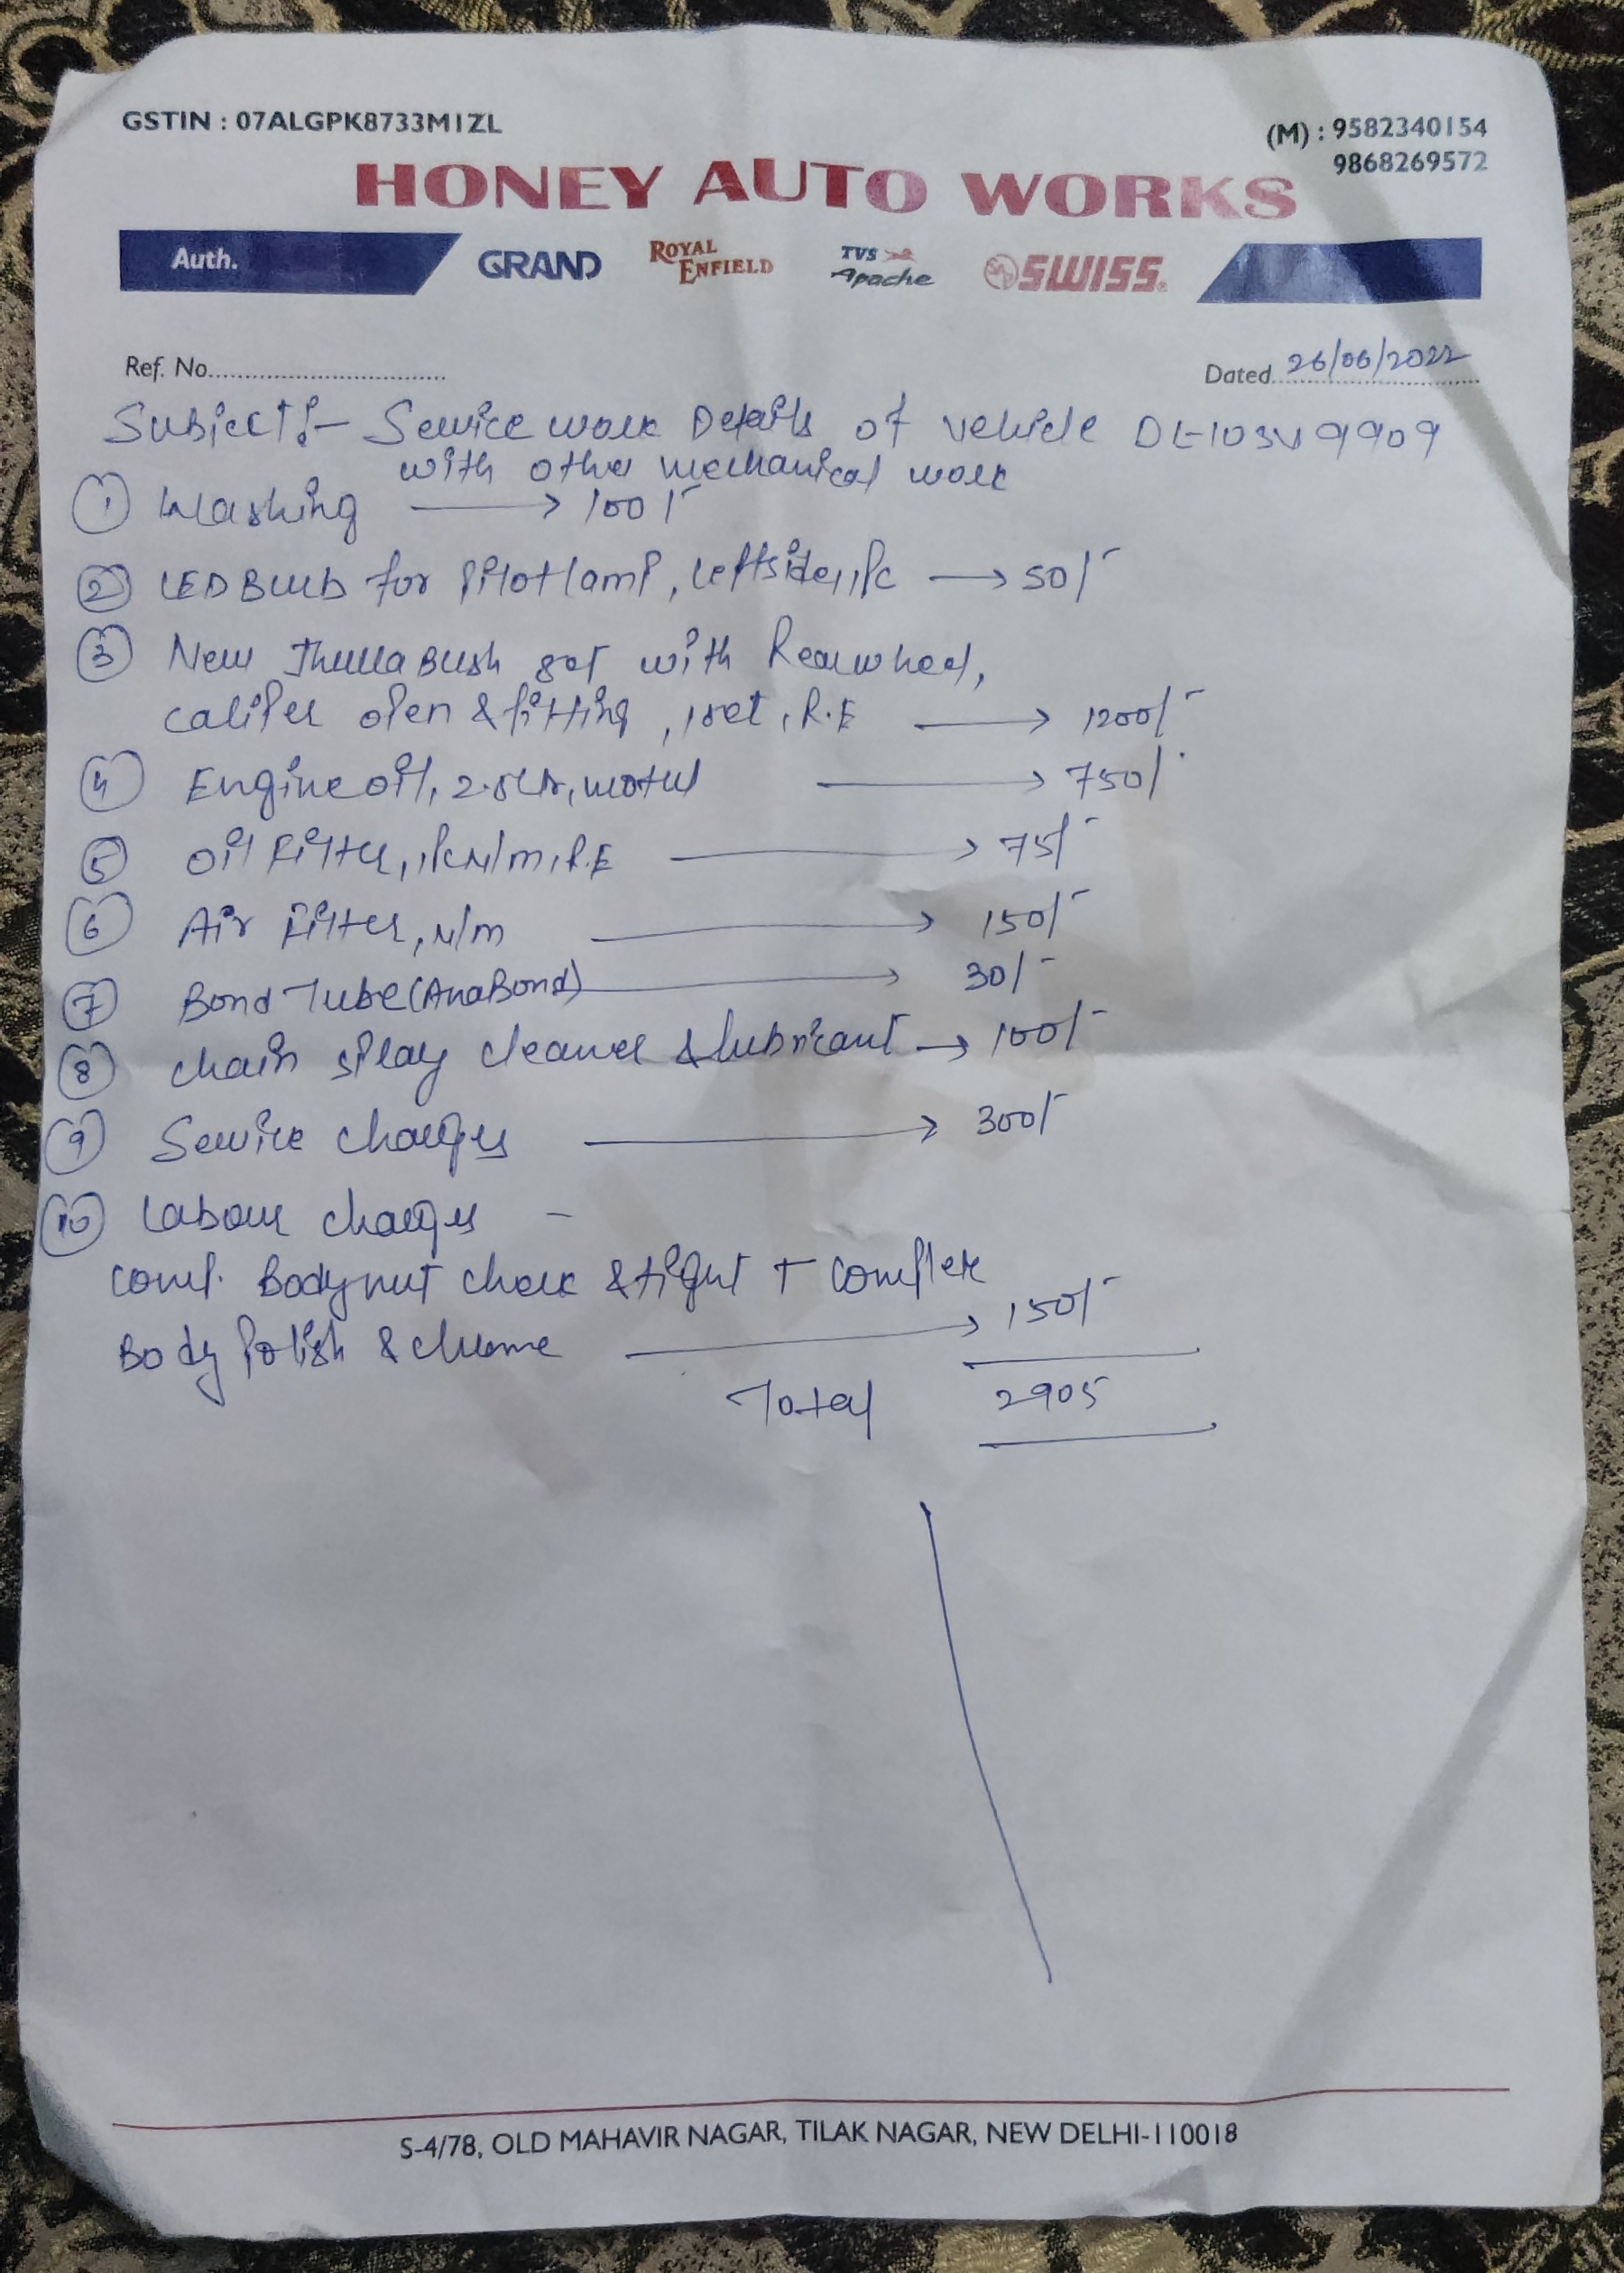 GSTIN : 07ALGPK8733M1ZL
(M) : 9582340154
9868269572
HONEY AUTO WORKS
Auth.
GRAND
ROYAL ENFIELD
TVS Apache
SWISS
Ref. No.
Dated 26/06/2022
Subject:- Service work Details of vehicle DL-10SV9909
with other mechanical work
① Washing → 100/-
② LED Bulb for Pilot lamp, Leftside, 1Pc → 50/-
③ New Bush set with Rearwheel,
caliper open & fitting, 1set, R.E → 1200/-
④ Engine oil, 2.5Ltr, motul → 750/-
⑤ Oil Filter, 1Pc N/m, R.E → 75/-
⑥ Air Filter, N/m → 150/-
⑦ Bond Tube (AnaBond) → 30/-
⑧ Chain spray cleaner & lubricant → 100/-
⑨ Service charges → 300/-
⑩ Labour charges -
Comp. Body nut check & tight + complete
Body Polish & chrome → 150/-
Total 2905
S-4/78, OLD MAHAVIR NAGAR, TILAK NAGAR, NEW DELHI-110018